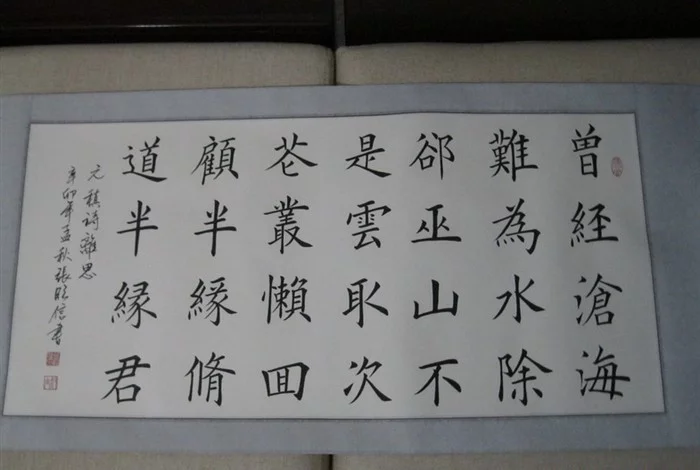 曾経滄海
難為水除
郤巫山不
是雲取次
花叢懶回
顧半緣脩
道半緣君
元稹詩離思
辛卯年孟秋張胜信書